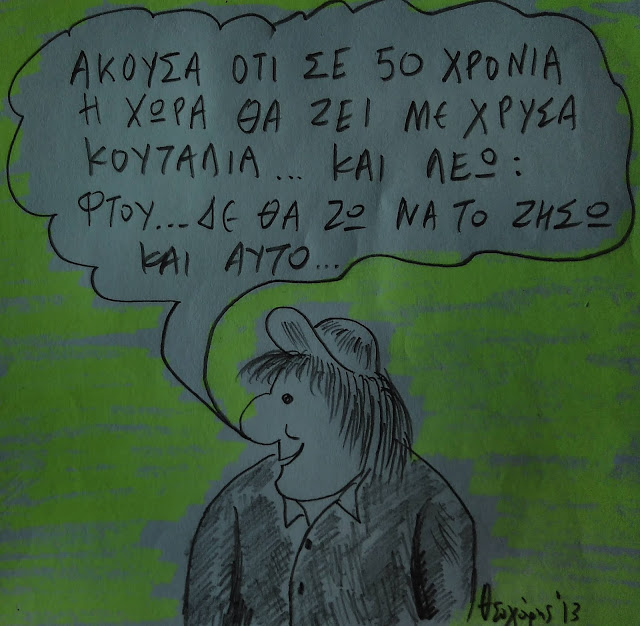 ΑΚΟΥΣΑ ΟΤΙ ΣΕ 50 ΧΡΟΝΙΑ
Η ΧΩΡΑ ΘΑ ΖΕΙ ΜΕ ΧΡΥΣΑ
ΚΟΥΤΑΛΙΑ... ΚΑΙ ΛΕΩ:
ΦΤΟΥ... ΔΕ ΘΑ ΖΩ ΝΑ ΤΟ ΖΗΣΩ
ΚΑΙ ΑΥΤΟ...
Θεοχάρης '13